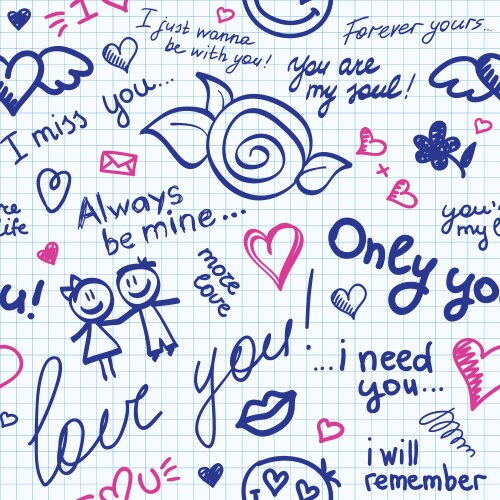 I
I just wanna
be with you!
Forever yours...
you are
my soul!
I miss you...
Always
be mine...
life
you'
my l
more
love
Only yo
u!
love you!
...i need
you...
i will
remember
U